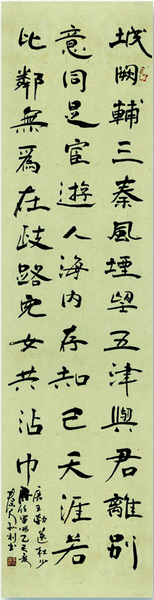 城闕輔三秦風煙望五津與君離別
意同是宦遊人海内存知己天涯若
比鄰無爲在歧路兒女共沾巾
唐王勃送杜少